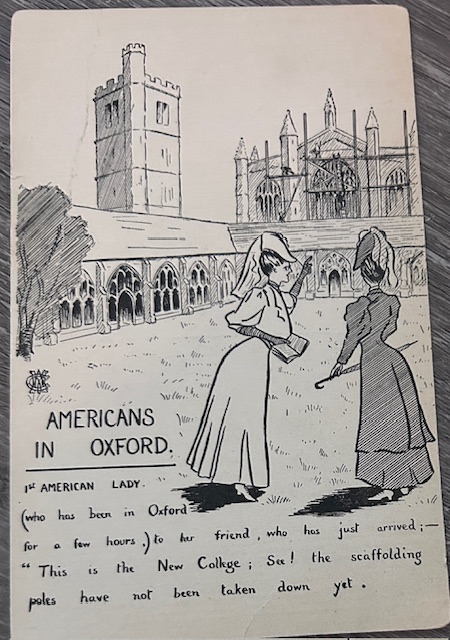 AMERICANS
IN OXFORD.
1st AMERICAN LADY.
(who has been in Oxford
for a few hours,) to her friend, who has just arrived;—
"This is the New College; See! the scaffolding
poles have not been taken down yet.